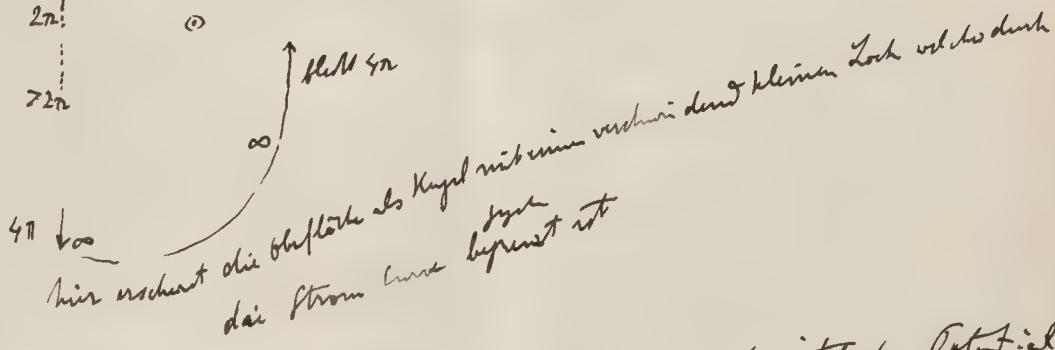 2π
⊙
bleibt 4π
>2π
∞
4π
∞
hier erscheint die Oberfläche als Kugel mit einem verschwindend kleinen Loch welches durch
die Strom Curve begrenzt ist
Potential